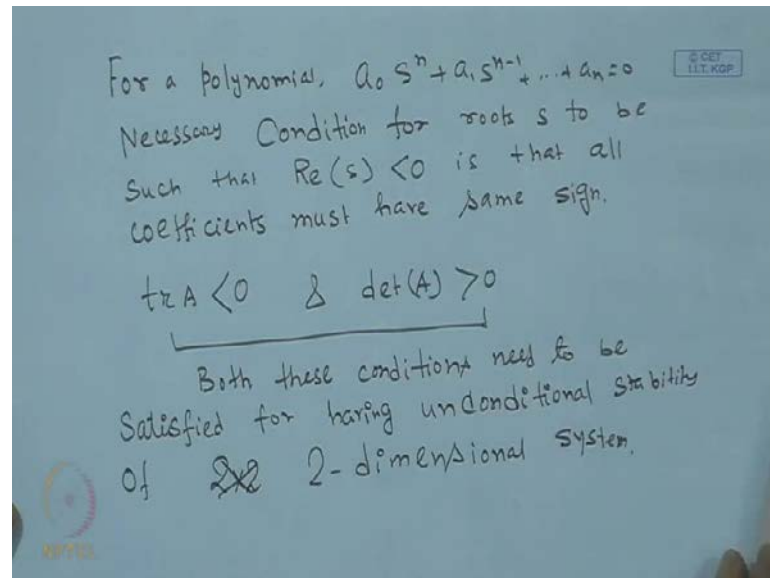 For a polynomial, a₀ sⁿ + a₁ sⁿ⁻¹ + ... + aₙ = 0
© CET
I.I.T. KGP
Necessary Condition for roots s to be
Such that Re(s) < 0 is that all
coefficients must have same sign.
tr A < 0 & det(A) > 0
Both these conditions need to be
Satisfied for having unconditional stability
Of 2-dimensional system.
NPTEL